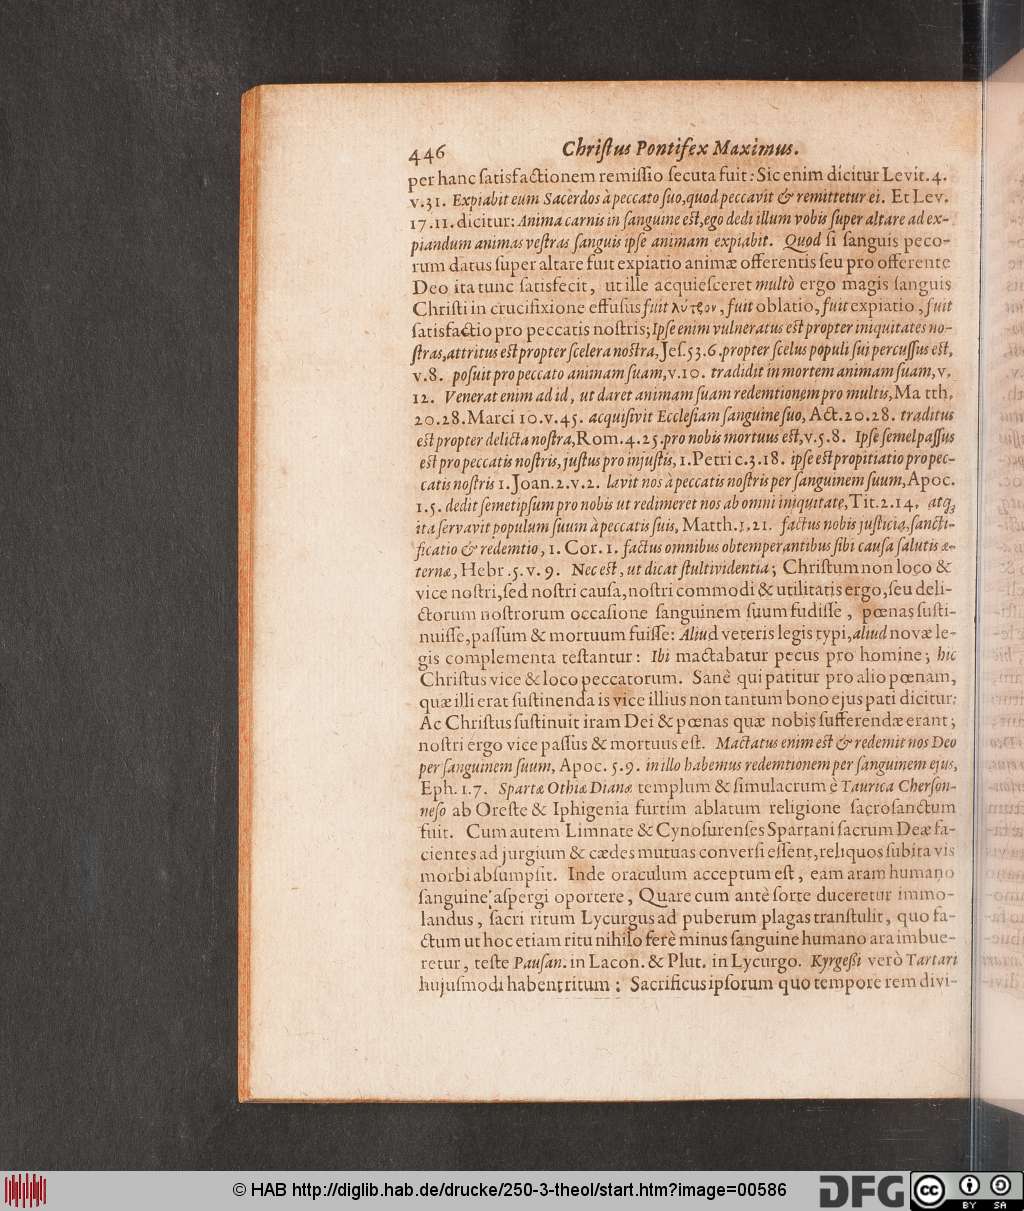 446 Chriſtus Pontifex Maximus.
per hanc ſatisfactionem remiſſio ſecuta fuit: Sic enim dicitur Levit. 4.
v. 31. Expiabit eum Sacerdos à peccato ſuo, quod peccavit & remittetur ei. Et Lev.
17. 11. dicitur: Anima carnis in ſanguine eſt, ego dedi illum vobis ſuper altare ad ex-
piandum animas veſtras ſanguis ipſe animam expiabit. Quod ſi ſanguis peco-
rum datus ſuper altare fuit expiatio animæ offerentis ſeu pro offerente
Deo ita tunc ſatisfecit, ut ille acquieſceret multò ergo magis ſanguis
Chriſti in crucifixione effuſus fuit λύτρον, fuit oblatio, fuit expiatio, fuit
ſatisfactio pro peccatis noſtris; Ipſe enim vulneratus eſt propter iniquitates no-
ſtras, attritus eſt propter ſcelera noſtra, Jeſ. 53. 6. propter ſcelus populi ſui percuſſus eſt,
v. 8. poſuit pro peccato animam ſuam, v. 10. tradidit in mortem animam ſuam, v.
12. Venerat enim ad id, ut daret animam ſuam redemtionem pro multis, Matth.
20. 28. Marci 10. v. 45. acquiſivit Eccleſiam ſanguine ſuo, Act. 20. 28. traditus
eſt propter delicta noſtra, Rom. 4. 25. pro nobis mortuus eſt, v. 5. 8. Ipſe ſemel paſſus
eſt pro peccatis noſtris, juſtus pro injuſtis, 1. Petri c. 3. 18. ipſe eſt propitiatio pro pec-
catis noſtris 1. Joan. 2. v. 2. lavit nos à peccatis noſtris per ſanguinem ſuum, Apoc.
1. 5. dedit ſemetipſum pro nobis ut redimeret nos ab omni iniquitate, Tit. 2. 14. atq;
ita ſervavit populum ſuum à peccatis ſuis, Matth. 1. 21. factus nobis juſticia, ſancti-
ficatio & redemtio, 1. Cor. 1. factus omnibus obtemperantibus ſibi cauſa ſalutis æ-
ternæ, Hebr. 5. v. 9. Nec eſt, ut dicat ſtultividentia; Chriſtum non loco &
vice noſtri, ſed noſtri cauſa, noſtri commodi & utilitatis ergo, ſeu deli-
ctorum noſtrorum occaſione ſanguinem ſuum fudiſſe, pœnas ſuſti-
nuiſſe, paſſum & mortuum fuiſſe: Aliud veteris legis typi, aliud novæ le-
gis complementa teſtantur: Ibi mactabatur pecus pro homine; hic
Chriſtus vice & loco peccatorum. Sanè qui patitur pro alio pœnam,
quæ illi erat ſuſtinenda is vice illius non tantum bono ejus pati dicitur:
Ac Chriſtus ſuſtinuit iram Dei & pœnas quæ nobis ſufferendæ erant;
noſtri ergo vice paſſus & mortuus eſt. Mactatus enim eſt & redemit nos Deo
per ſanguinem ſuum, Apoc. 5. 9. in illo habemus redemtionem per ſanguinem ejus,
Eph. 1. 7. Spartæ Othiæ Dianæ templum & ſimulacrum è Taurica Cherſon-
neſo ab Oreſte & Iphigenia furtim ablatum religione ſacroſanctum
fuit. Cum autem Limnate & Cynoſurenſes Spartani ſacrum Deæ fa-
cientes ad jurgium & cædes mutuas converſi eſſent, reliquos ſubita vis
morbi abſumpſit. Inde oraculum acceptum eſt, eam aram humano
ſanguine aſpergi oportere, Quare cum antè ſorte duceretur immo-
landus, ſacri ritum Lycurgus ad puberum plagas tranſtulit, quo fa-
ctum ut hoc etiam ritu nihilo ferè minus ſanguine humano ara imbue-
retur, teſte Pauſan. in Lacon. & Plut. in Lycurgo. Kyrgeßi verò Tartari
hujuſmodi habent ritum: Sacrificus ipſorum quo tempore rem divi-
© HAB http://diglib.hab.de/drucke/250-3-theol/start.htm?image=00586
DFG
cc BY SA